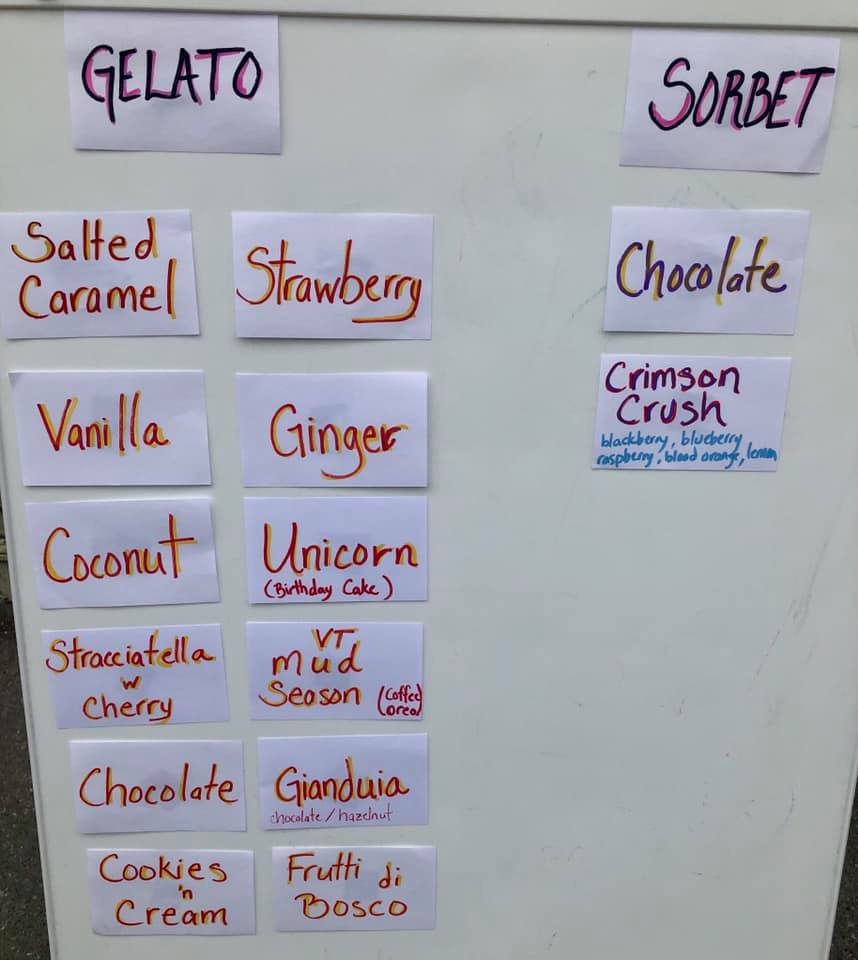 GELATO
SORBET
Salted
Caramel
Strawberry
Chocolate
Vanilla
Ginger
Crimson
Crush
blackberry, blueberry
raspberry, blood orange, lemon
Coconut
Unicorn
(Birthday Cake)
Stracciatella
w
Cherry
VT
mud
Season (Coffee
Oreo)
Chocolate
Gianduia
chocolate / hazelnut
Cookies
'n
Cream
Frutti di
Bosco